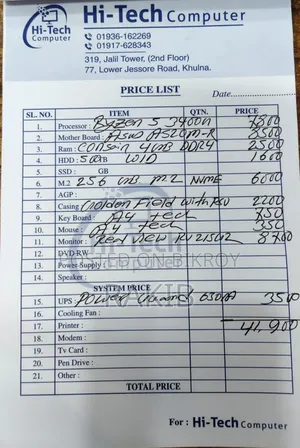 Hi-Tech Computer
Hi-Tech
Computer
01936-162269
01917-628343
319, Jalil Tower, (2nd Floor)
77, Lower Jessore Road, Khulna.
PRICE LIST
Date
SL. NO. ITEM QTN. PRICE
1. Processor: Ryzen 5
2. Mother Board: Asus A520M-R 8500
3. Ram: Corsair DDR4 2500
4. HDD: 500TB W/D 1600
5. SSD: GB
6. M.2 256 M.2 NVME 6000
7. AGP:
8. Casing Golden Field with PSU 2200
9. Key Board: A4 tech 750
10. Mouse: A4 tech 350
11. Monitor: Real View RV215H2 8700
12. DVD-RW
13. Power-Supply
14. Speaker:
POSTED ON BIKROY
RAKIB
SYSTEM PRICE
15. UPS Power Guard 650VA 3500
16. Cooling Fan:
17. Printer: 41,900
18. Modem:
19. Tv Card:
20. Pen Drive:
21. Other:
TOTAL PRICE
For : Hi-Tech Computer